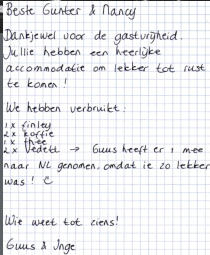 Beste Gunter & Nancy
Dankjewel voor de gastvrijheid.
Jullie hebben een heerlijke
accommodatie om lekker tot rust
te komen!
We hebben verbruikt:
1x finley
2x koffie
1x thee
2x Vedett → Guus heeft er 1 mee
naar NL genomen, omdat ie zo lekker
was!
Wie weet tot ziens!
Guus & Inge